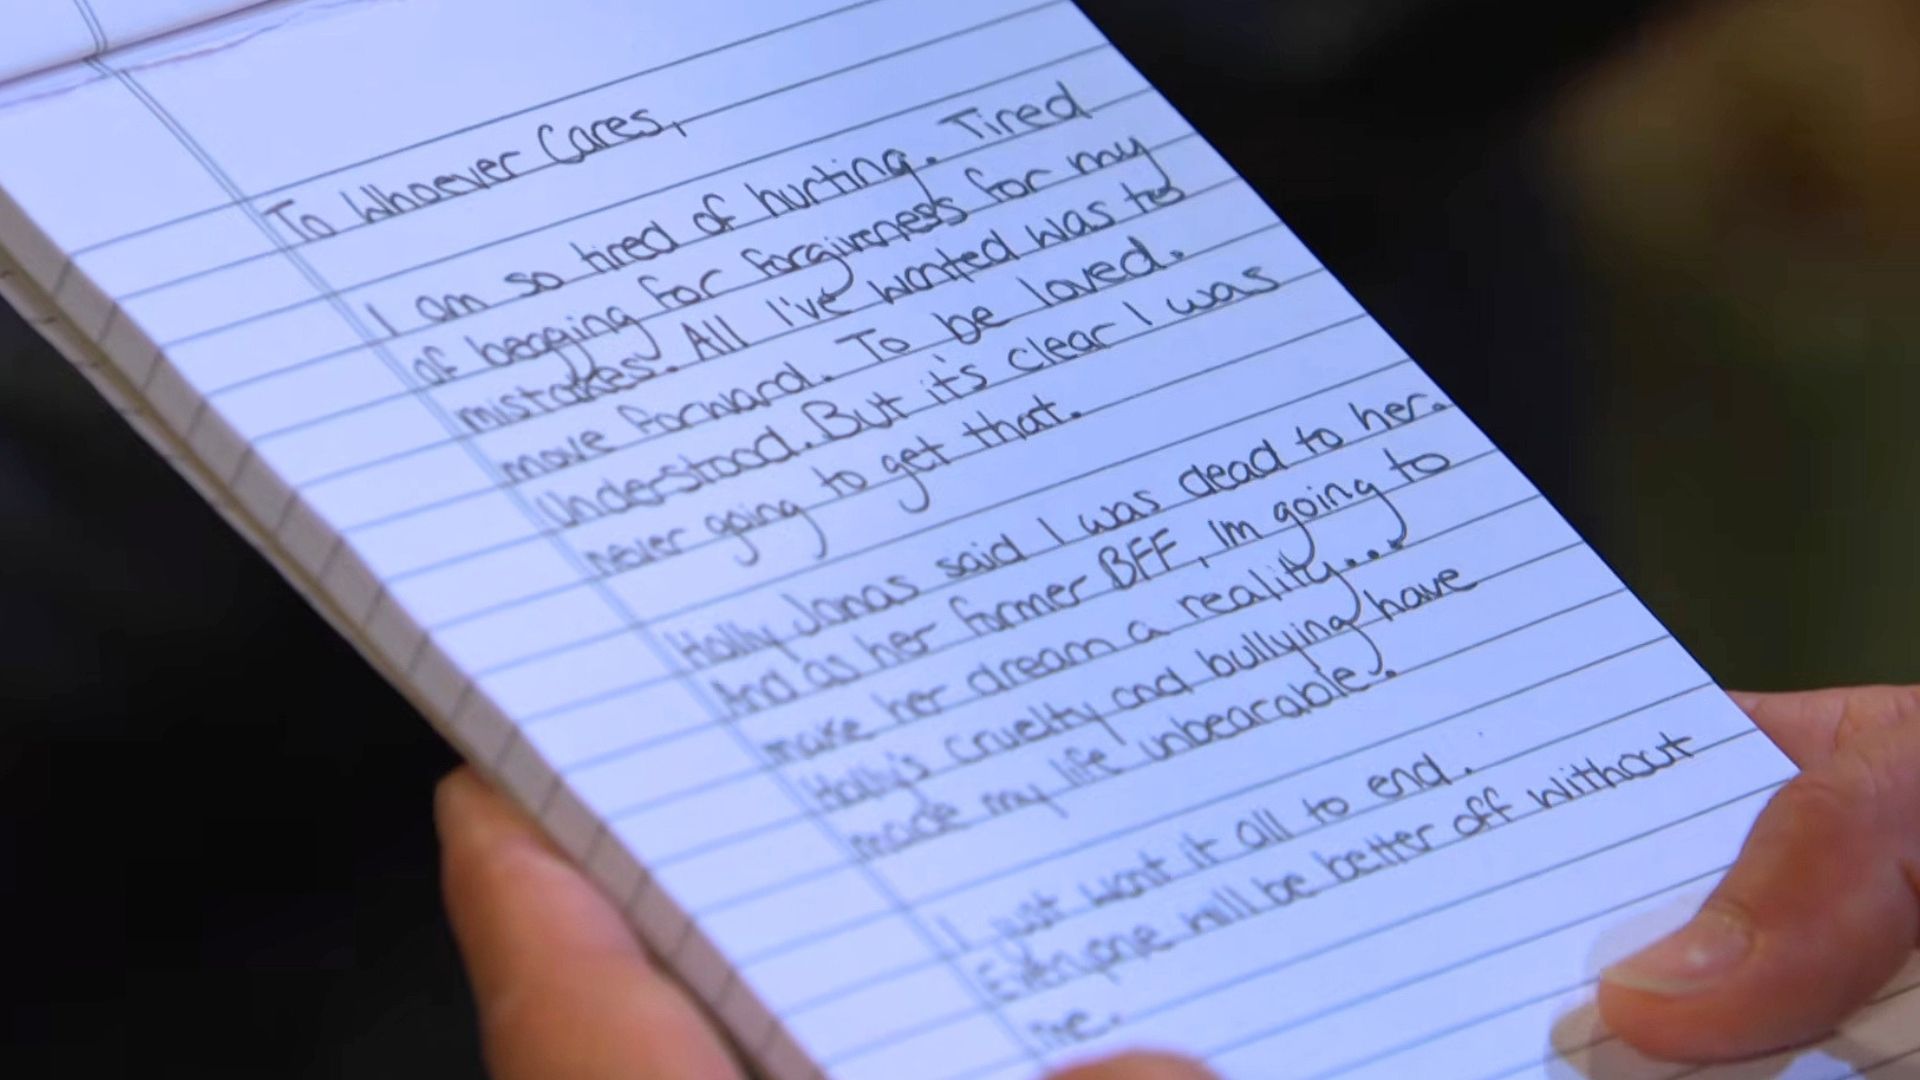 To Whoever Cares,
I am so tired of hurting. Tired
of begging for forgiveness for my
mistakes. All I've wanted was to
move forward. To be loved.
Understood. But it's clear I was
never going to get that.
Holly Jonas said I was dead to her.
And as her former BFF, Im going to
make her dream a reality...
Holly's cruelty and bullying have
made my life unbearable.
I just want it all to end.
Everyone will be better off without
me.